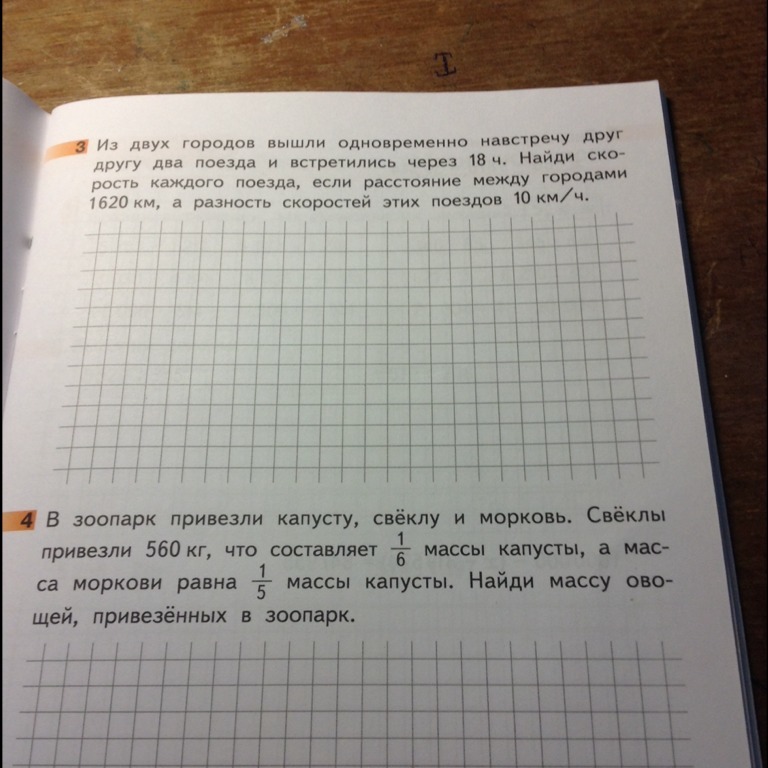 3 Из двух городов вышли одновременно навстречу друг
другу два поезда и встретились через 18 ч. Найди ско-
рость каждого поезда, если расстояние между городами
1620 км, а разность скоростей этих поездов 10 км/ч.
4 В зоопарк привезли капусту, свёклу и морковь. Свёклы
привезли 560 кг, что составляет 1/6 массы капусты, а мас-
са моркови равна 1/5 массы капусты. Найди массу ово-
щей, привезённых в зоопарк.